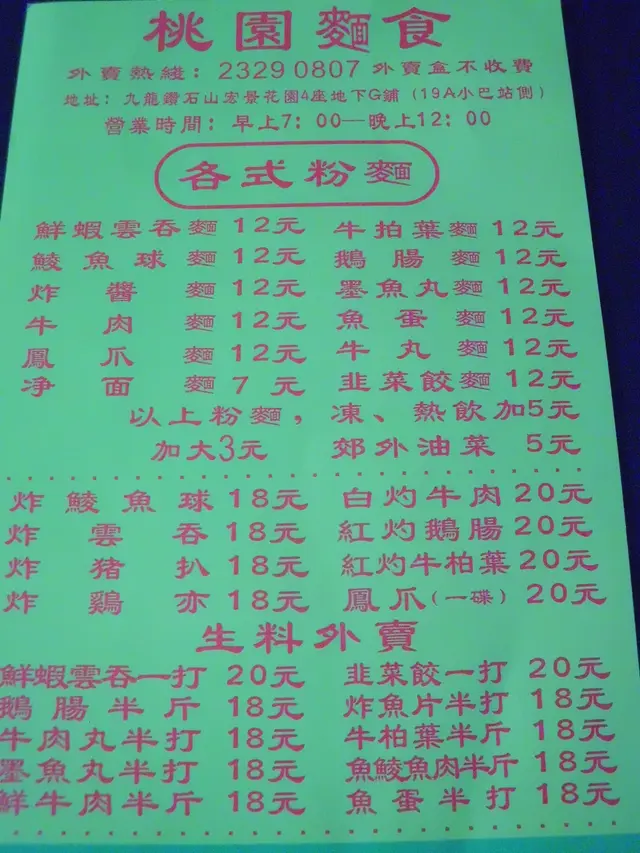 桃園麵食
外賣熱綫：2329 0807 外賣盒不收費
地址：九龍鑽石山宏景花園4座地下G鋪（19A小巴站側）
營業時間：早上7：00—晚上12：00
各式粉麵
鮮蝦雲吞麵 12元 牛拍葉麵 12元
鯪魚球麵 12元 鵝腸麵 12元
炸醬麵 12元 墨魚丸麵 12元
牛肉麵 12元 魚蛋麵 12元
鳳爪麵 12元 牛丸麵 12元
净面麵 7元 韭菜餃麵 12元
以上粉麵，凍、熱飲加5元
加大3元 郊外油菜 5元
炸鯪魚球 18元 白灼牛肉 20元
炸雲吞 18元 紅灼鵝腸 20元
炸猪扒 18元 紅灼牛柏葉 20元
炸鷄亦 18元 鳳爪（一碟） 20元
生料外賣
鮮蝦雲吞一打 20元 韭菜餃一打 20元
鵝腸半斤 18元 炸魚片半打 18元
牛肉丸半打 18元 牛柏葉半斤 18元
墨魚丸半打 18元 魚鯪魚肉半斤 18元
鮮牛肉半斤 18元 魚蛋半打 18元